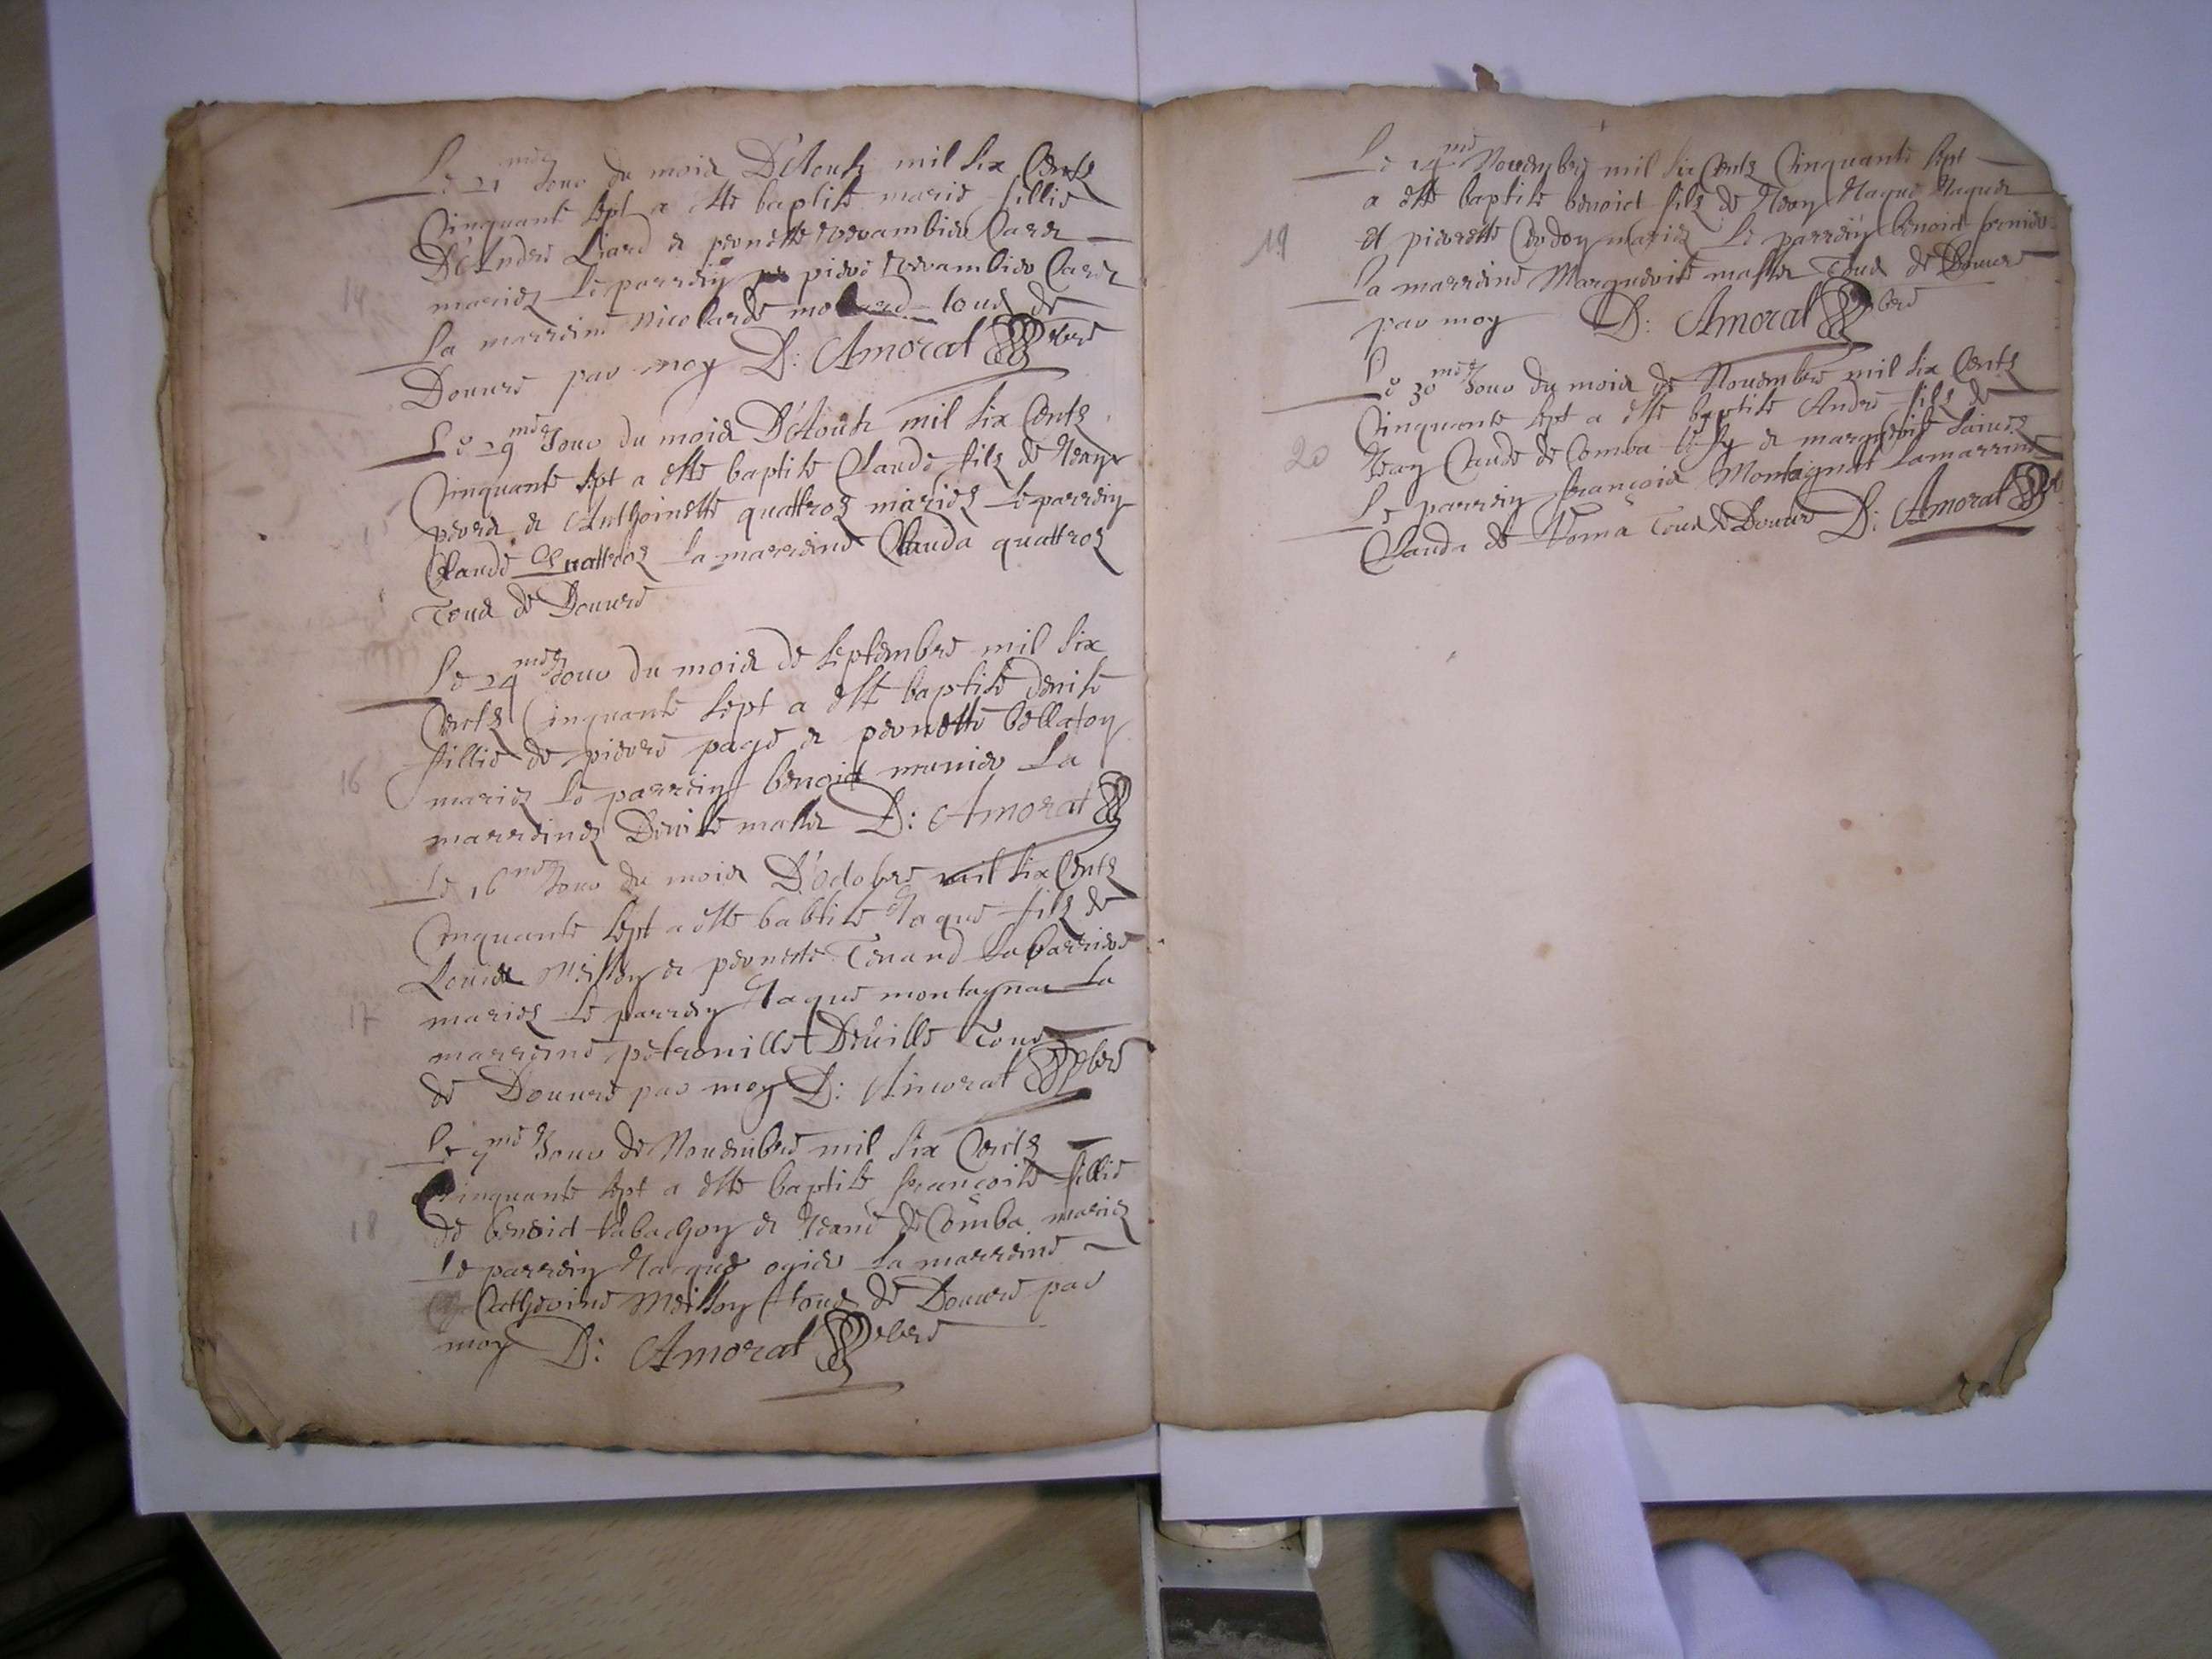 Le 21me Jour du mois D'Aoust mil six Cents
Cinquante sept a esté baptisé marie fillie
D'Andre Liard et pernette
mariez Le parrein pierre
La marreine Nicolarde tous de
Douure par moy D: Amorat
14
Le 29me Jour du mois D'Aoust mil six Cents
Cinquante sept a esté baptisé Claude filz de Jean
et Anthoinette quattroz mariez Le parrein
Claude Quattroz La marreine Clauda quattroz
Tous de Douure
Le 24me Jour du mois de septembre mil six
Cents Cinquante sept a esté baptisé denise
fillie de pierre page et pernette bellaton
16
mariez Le parrein benoist munier La
marreinez Denise D: Amorat
Le 16me Jour du mois D'octobre mil six Cents
Cinquante sept a esté babtisé Jaque filz de
Louis et pernette Tenand
17
mariez Le parrein Jaque montagnat La
marreine petronille Deuille Tous
de Douure par moy D: Amorat
Le 9me Jour de Nouembre mil six Cents
Cinquante sept a esté baptisé françoise fillie
18
de benoid et Jeane de Comba mariez
Le parrein Jacque ogier La marreine
Catherine tous de Douure par
moy D: Amorat
Le 14me Nouembre mil six Cents Cinquante sept
a esté baptisé benoid filz de Jean Jaque
19
et pierrette mariez Le parrein benoist
La marreine Marguerite Tous de Douure
par moy D: Amorat
Le 30me Jour du mois de Nouembre mil six Cents
Cinquante sept a esté baptisé Andre filz de
20
Jean Claude de Comba et marguerite
Le parrein françois Montagnat La marreine
Clauda de Roma Tous de Douure D: Amorat